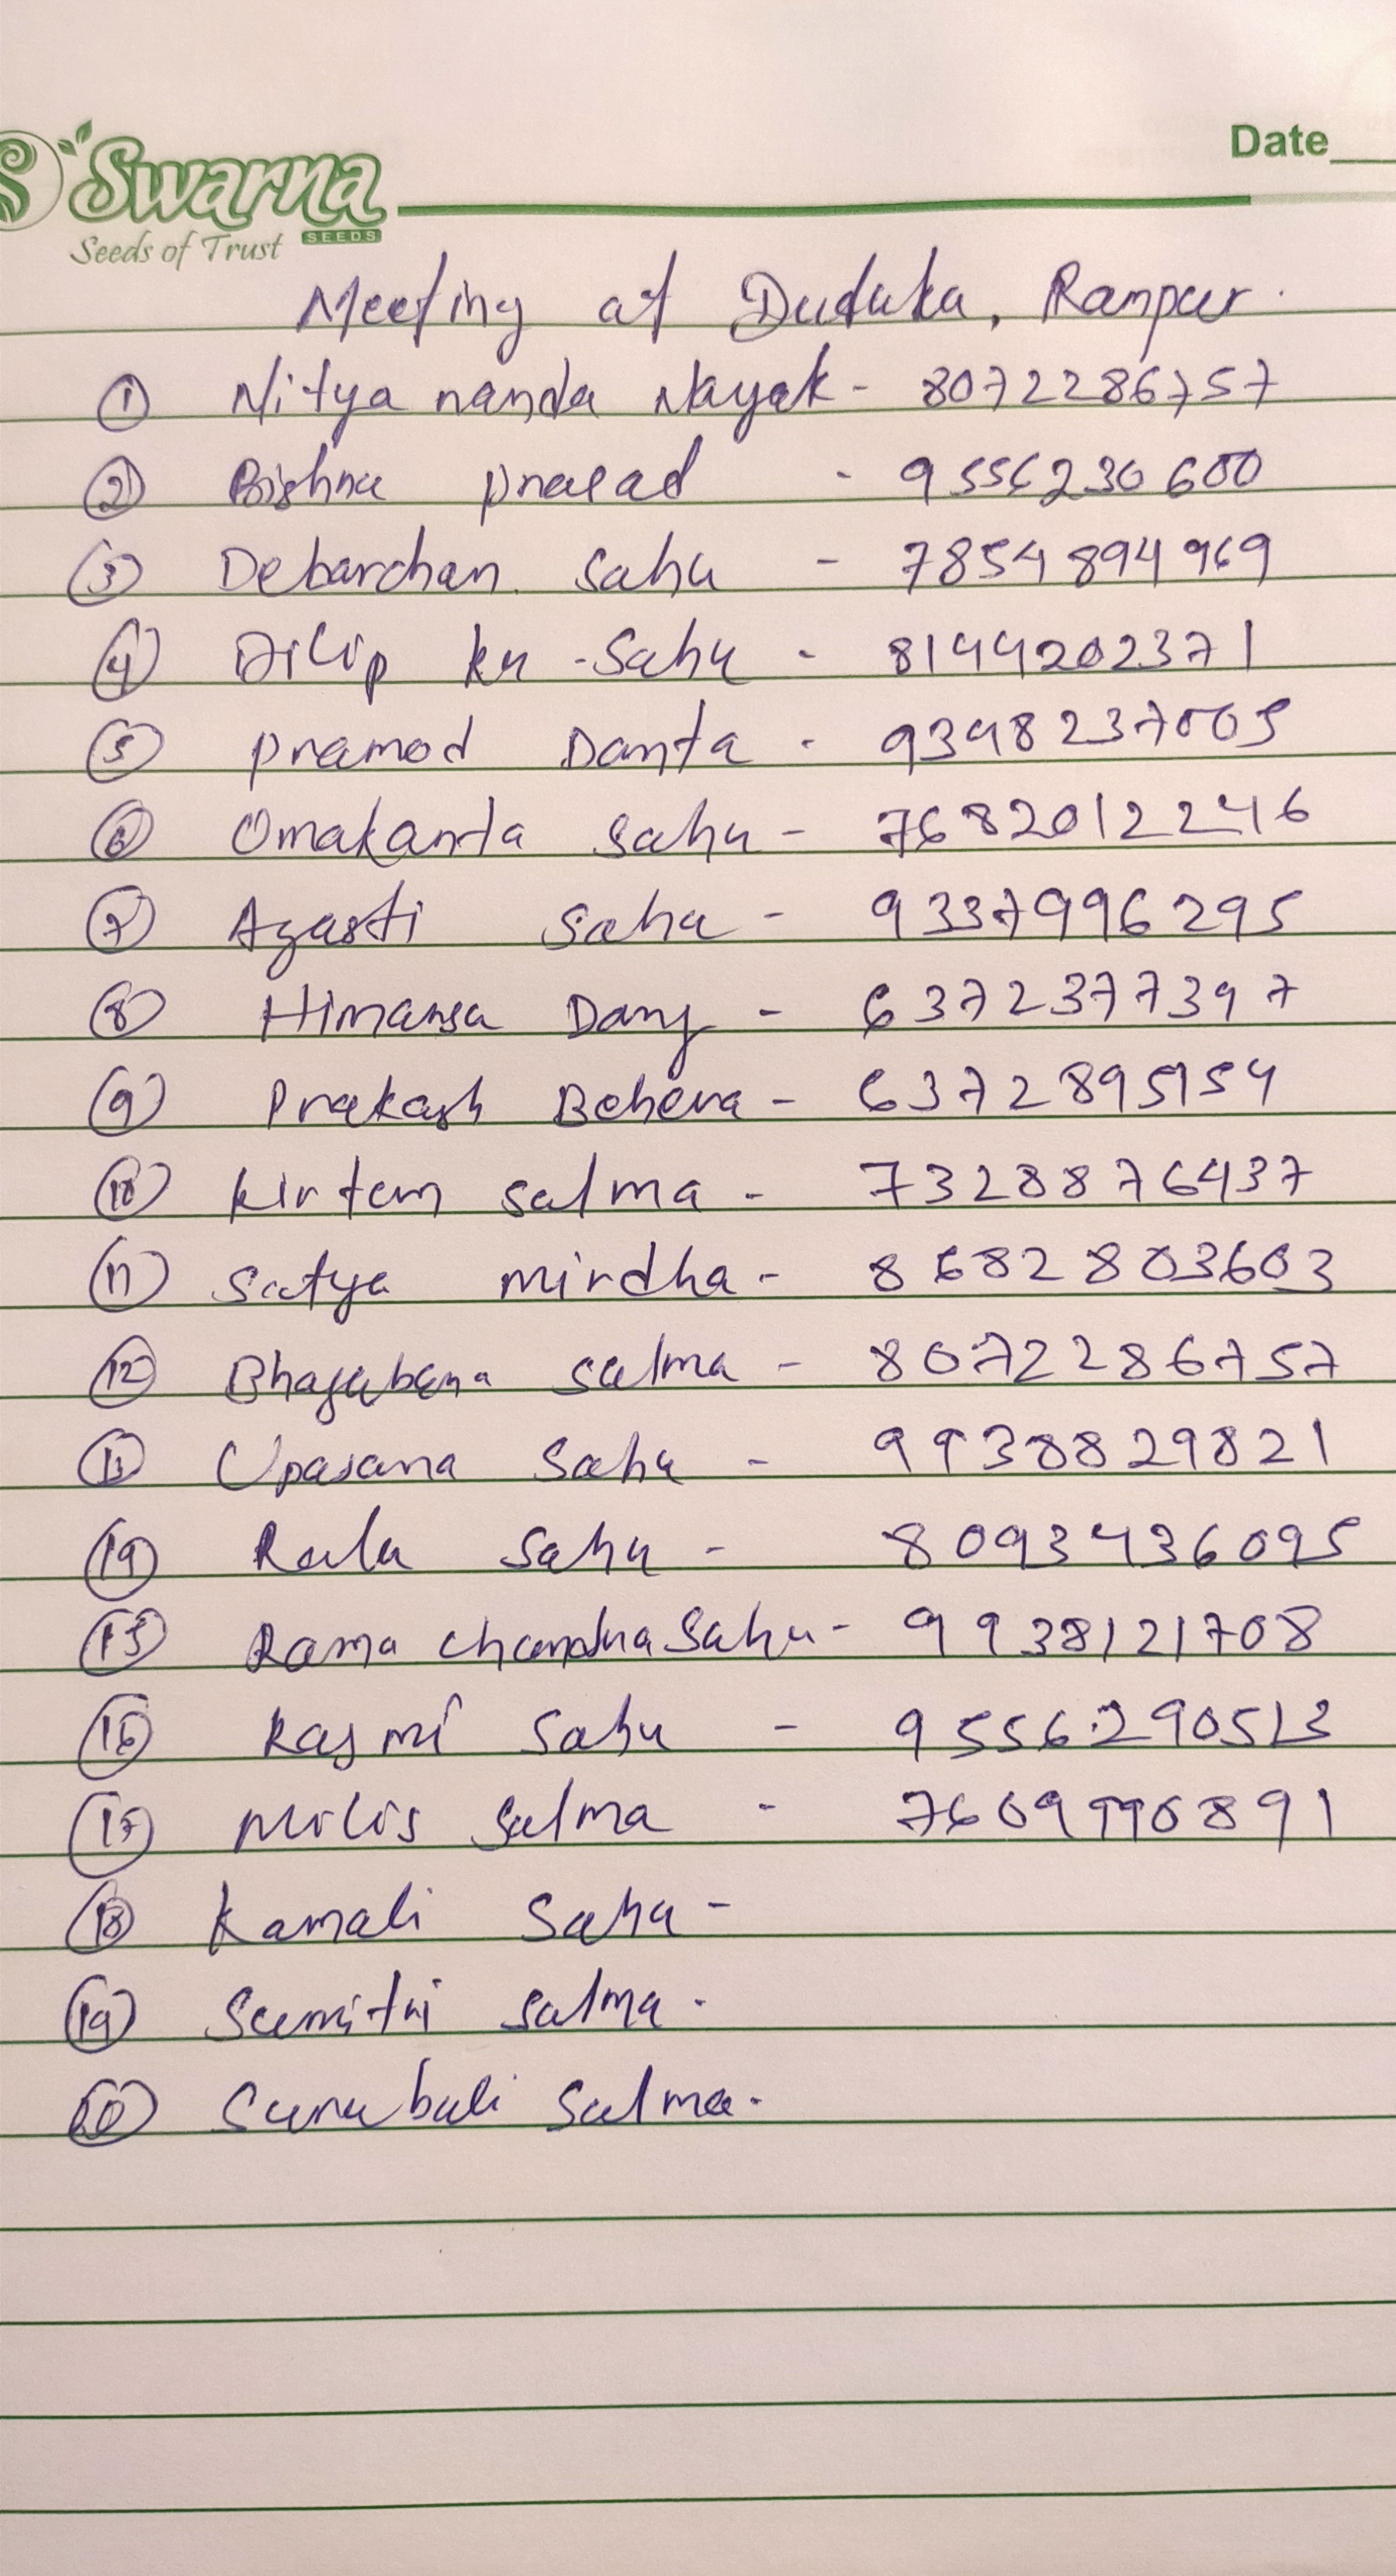 Swarna
SEEDS
Seeds of Trust
Date
Meeting at Duduka, Rampur.
① Nitya nanda Nayak - 8072286757
② Bishnu prasad - 9556230600
③ Debarchan sahu - 7854894969
④ Dilip ku - Sahu - 8144202371
⑤ pramod Danta - 9348237005
⑥ Omakanta sahu - 7682012246
⑦ Agasti sahu - 9337996295
⑧ Himansa Dang - 6372377397
⑨ Prakash Behera - 6372895154
⑩ kirtan salma - 7328876437
⑪ Satya mirdha - 8682803603
⑫ Bhagabana salma - 8072286757
⑬ Upasana Sahu - 9938829821
⑭ Rulu Sahu - 8093436095
⑮ Rama chandra Sahu - 9938121708
⑯ Rasmi Sahu - 9556290513
⑰ Milis salma - 7609990891
⑱ Kamali Sahu -
⑲ Sumitri salma .
⑳ Sunabali Salma .